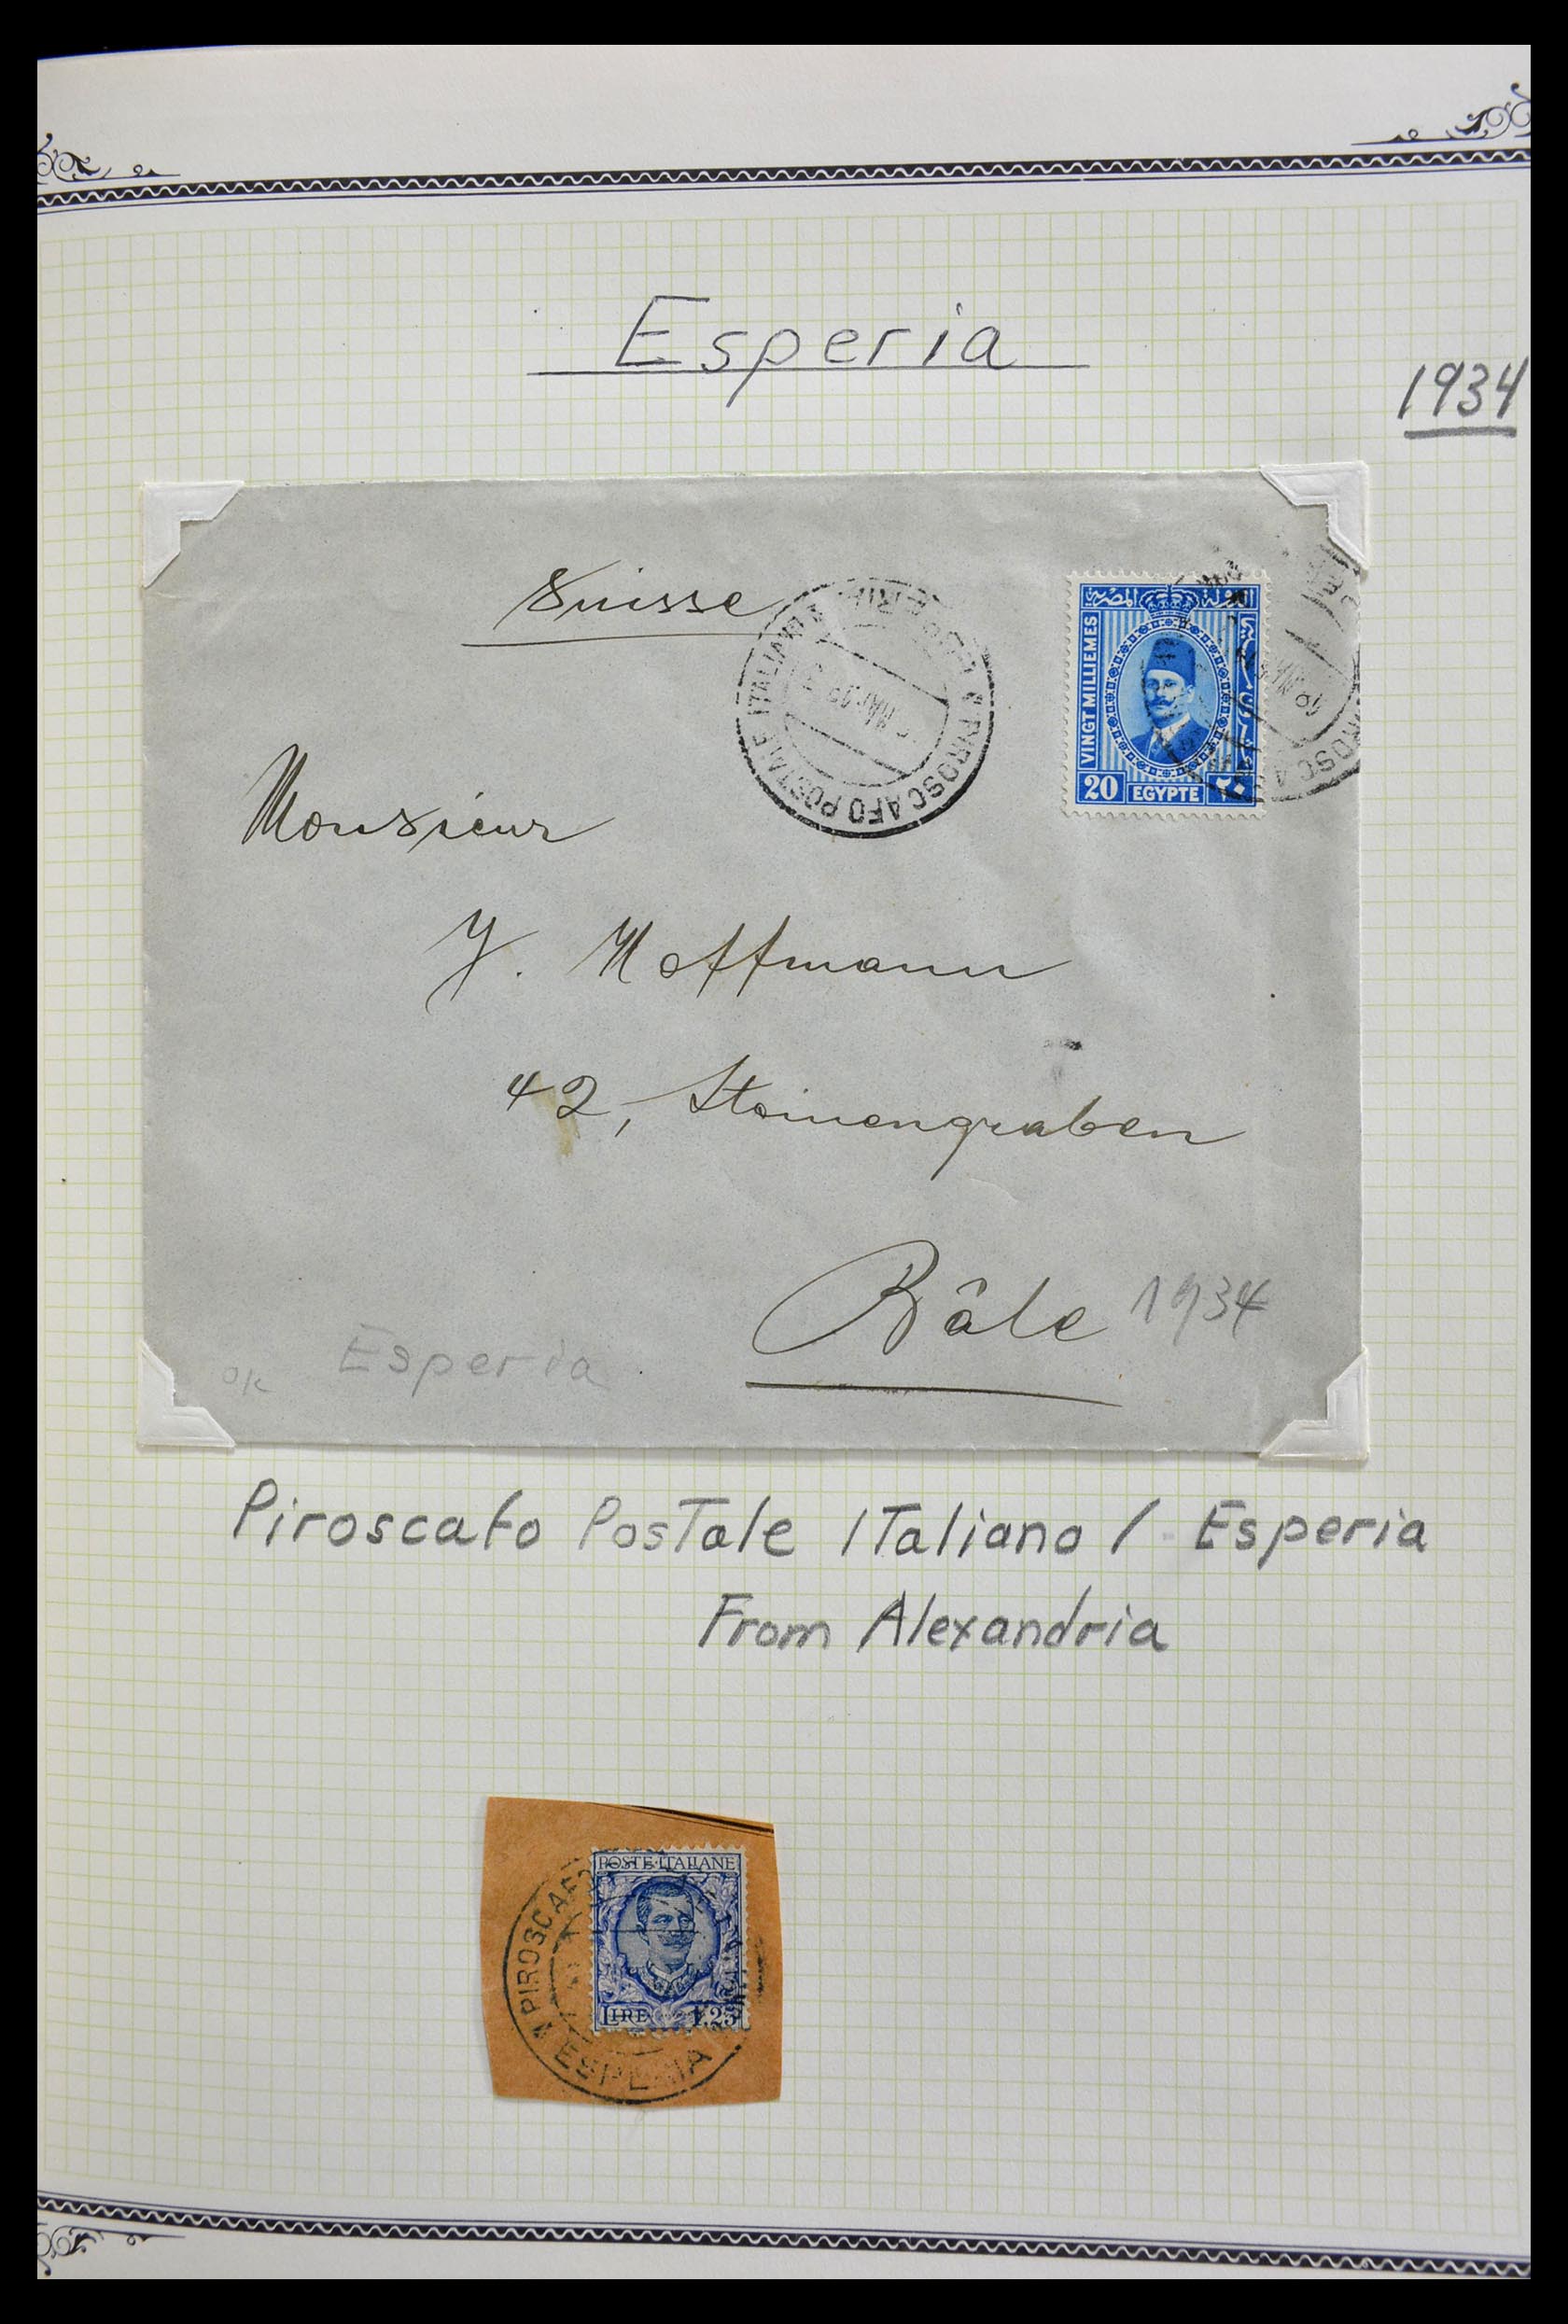 Esperia
1934
Suisse
PIROSCAFO POSTALE ITALIANO
VINGT MILLIEMES
20 EGYPTE ٢٠
Monsieur
J. Hoffmann
42, Steinengraben
Bâle 1934
OK Esperia
Piroscafo Postale Italiano / Esperia
From Alexandria
POSTE ITALIANE
LIRE 1.25
PIROSCAFO
ESPERIA